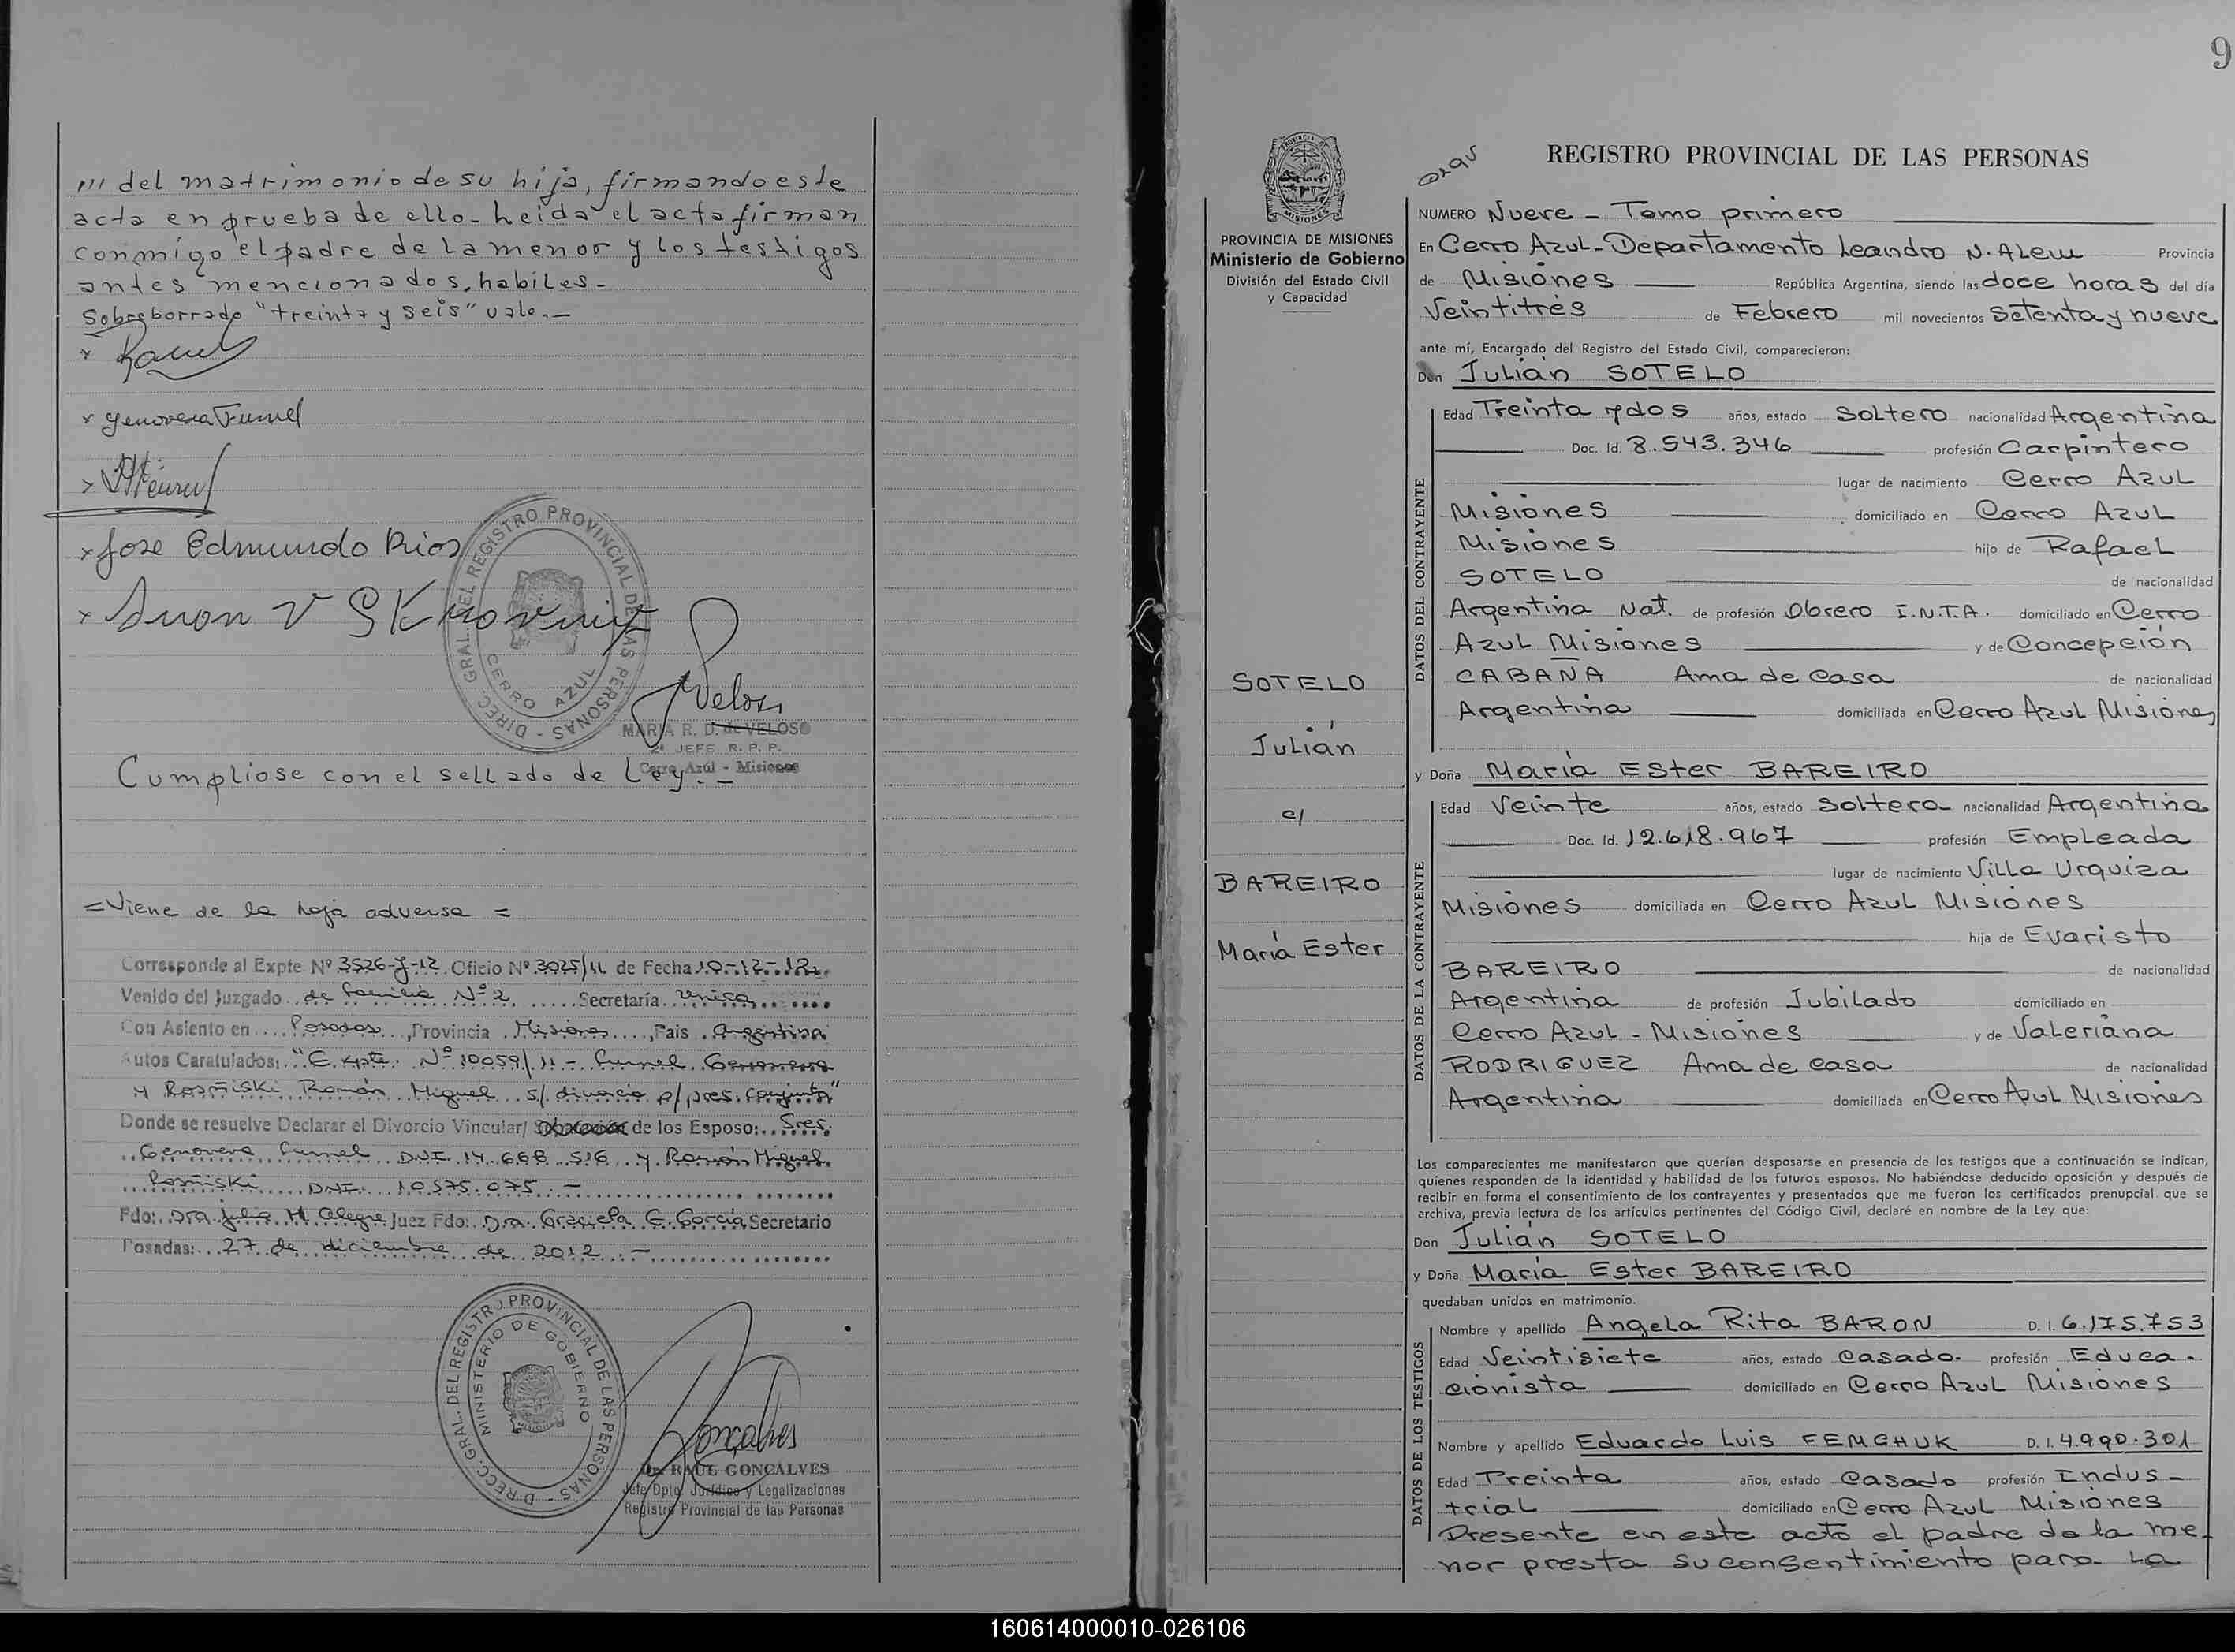 /// del matrimonio de su hija, firmando este
acta en prueba de ello. Leida el acta firman
conmigo el padre de la menor y los testigos
antes mencionados, habiles.-
Sobreborrado "treinta y seis" vale.-
x
x Genoveva Funnel
x
x Jose Edmundo Rios
x
DIREC. GRAL. DEL REGISTRO PROVINCIAL DE LAS PERSONAS -
CERRO AZUL
Veloso
MARIA R. D. de VELOSO
2ª JEFE R. P. P.
Cerro Azúl - Misiones
Cumpliose con el sellado de Ley.-
= Viene de la hoja adversa =
Corresponde al Expte. Nº 3526-J-12. Oficio Nº 3025/11 de Fecha 10-12-12
Venido del Juzgado de familia Nº 2 Secretaría Unica
Con Asiento en Posadas, Provincia Misiones, Pais Argentina
Autos Caratulados: "Expte. Nº 10059/11 - Funnel Genoveva
y Rosñiski Ramón Miguel s/ divorcio p/ pres. conjunta"
Donde se resuelve Declarar el Divorcio Vincular/ Separación de los Esposo: Sres.
Genoveva Funnel DNI 14.668.516 y Ramón Miguel
Rosñiski DNI. 10.575.075.-
Fdo: Dra Julia H Alegre Juez Fdo: Dra. Graciela C. García Secretario
Posadas: 27 de diciembre de 2012.-
DIRECC. GRAL. DEL REGISTRO PROVINCIAL DE LAS PERSONAS -
MINISTERIO DE GOBIERNO
Goncalves
Dr. RAUL GONCALVES
Jefe Dpto. Jurídico y Legalizaciones
Registro Provincial de las Personas
9
PROVINCIA DE MISIONES
Ministerio de Gobierno
División del Estado Civil
y Capacidad
SOTELO
Julián
c/
BAREIRO
María Ester
REGISTRO PROVINCIAL DE LAS PERSONAS
NUMERO Nueve - Tomo primero
En Cerro Azul - Departamento Leandro N. Alem Provincia
de Misiones República Argentina, siendo las doce horas del día
Veintitrés de Febrero mil novecientos Setenta y nueve
ante mí, Encargado del Registro del Estado Civil, comparecieron:
Don Julián SOTELO
DATOS DEL CONTRAYENTE
Edad Treinta y dos años, estado Soltero nacionalidad Argentina
Doc. Id. 8.543.346 profesión Carpintero
lugar de nacimiento Cerro Azul
Misiones domiciliado en Cerro Azul
Misiones hijo de Rafael
SOTELO de nacionalidad
Argentina Nat. de profesión Obrero I.N.T.A. domiciliado en Cerro
Azul Misiones y de Concepción
CABAÑA Ama de Casa de nacionalidad
Argentina domiciliada en Cerro Azul Misiones
y Doña María Ester BAREIRO
DATOS DE LA CONTRAYENTE
Edad Veinte años, estado Soltera nacionalidad Argentina
Doc. Id. 12.618.967 profesión Empleada
lugar de nacimiento Villa Urquiza
Misiones domiciliada en Cerro Azul Misiones
hija de Evaristo
BAREIRO de nacionalidad
Argentina de profesión Jubilado domiciliado en
Cerro Azul - Misiones y de Valeriana
RODRIGUEZ Ama de casa de nacionalidad
Argentina domiciliada en Cerro Azul Misiones
Los comparecientes me manifestaron que querían desposarse en presencia de los testigos que a continuación se indican,
quienes responden de la identidad y habilidad de los futuros esposos. No habiéndose deducido oposición y después de
recibir en forma el consentimiento de los contrayentes y presentados que me fueron los certificados prenupcial que se
archiva, previa lectura de los artículos pertinentes del Código Civil, declaré en nombre de la Ley que:
Don Julián SOTELO
y Doña María Ester BAREIRO
quedaban unidos en matrimonio.
DATOS DE LOS TESTIGOS
Nombre y apellido Angela Rita BARON D. I. 6.175.753
Edad Veintisiete años, estado Casado. profesión Educa-
cionista domiciliado en Cerro Azul Misiones
Nombre y apellido Eduardo Luis FEMCHUK D. I. 4.990.301
Edad Treinta años, estado Casado profesión Indus-
trial domiciliado en Cerro Azul Misiones
Presente en este acto el padre de la me-
nor presta su consentimiento para la
160614000010-026106